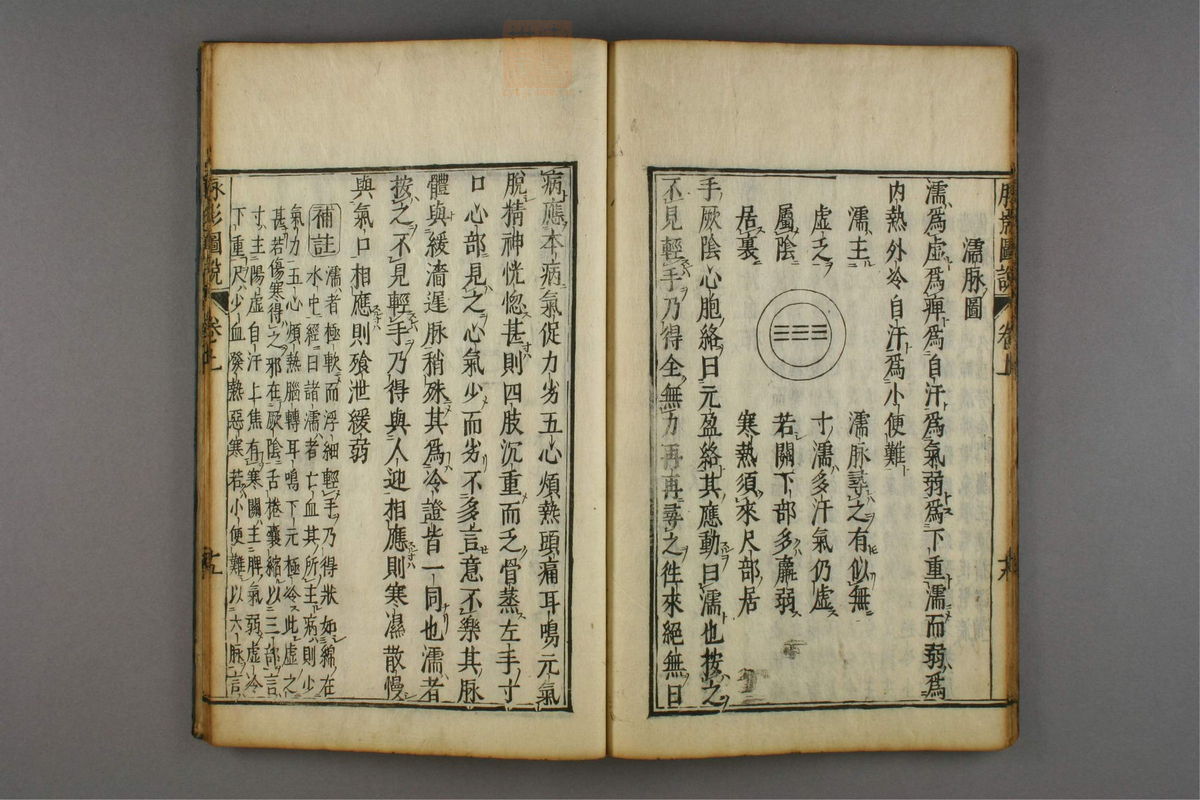 濡脉圖
濡爲虛爲痺爲自汗爲氣弱爲下重濡而弱爲
内熱外冷自汗爲小便難
濡主
虛乏
屬陰
居裏
濡脉尋之有似無
寸濡多汗氣仍虛
若關下部多羸弱
寒熱須來尺部居
手厥陰心胞絡曰元盈絡其應動曰濡也按之
不見輕手乃得全無力再再尋之往來絕無曰
病應本病氣促力劣五心煩熱頭痛耳鳴元氣
脫精神恍惚甚則四肢沉重而乏骨蒸左手寸
口心部見之心氣少而劣不多言意不樂其脉
體與緩濇遲脉稍殊其爲冷證皆一同也濡者
按之不見輕手乃得與人迎相應則寒濕散慢
與氣口相應則飱泄緩弱
補註
濡者極軟而浮細輕手乃得狀如綿在
水中經曰諸濡者亡血其所主病則少
氣力五心煩熱腦轉耳鳴下元極冷此虛之
甚若傷寒得之邪在厥陰舌捲囊縮以三部言
寸主陽虛自汗上焦有寒關主脾氣弱虛冷
下重尺少血發熱惡寒若小便難以六脉言
脉影圖說
卷上